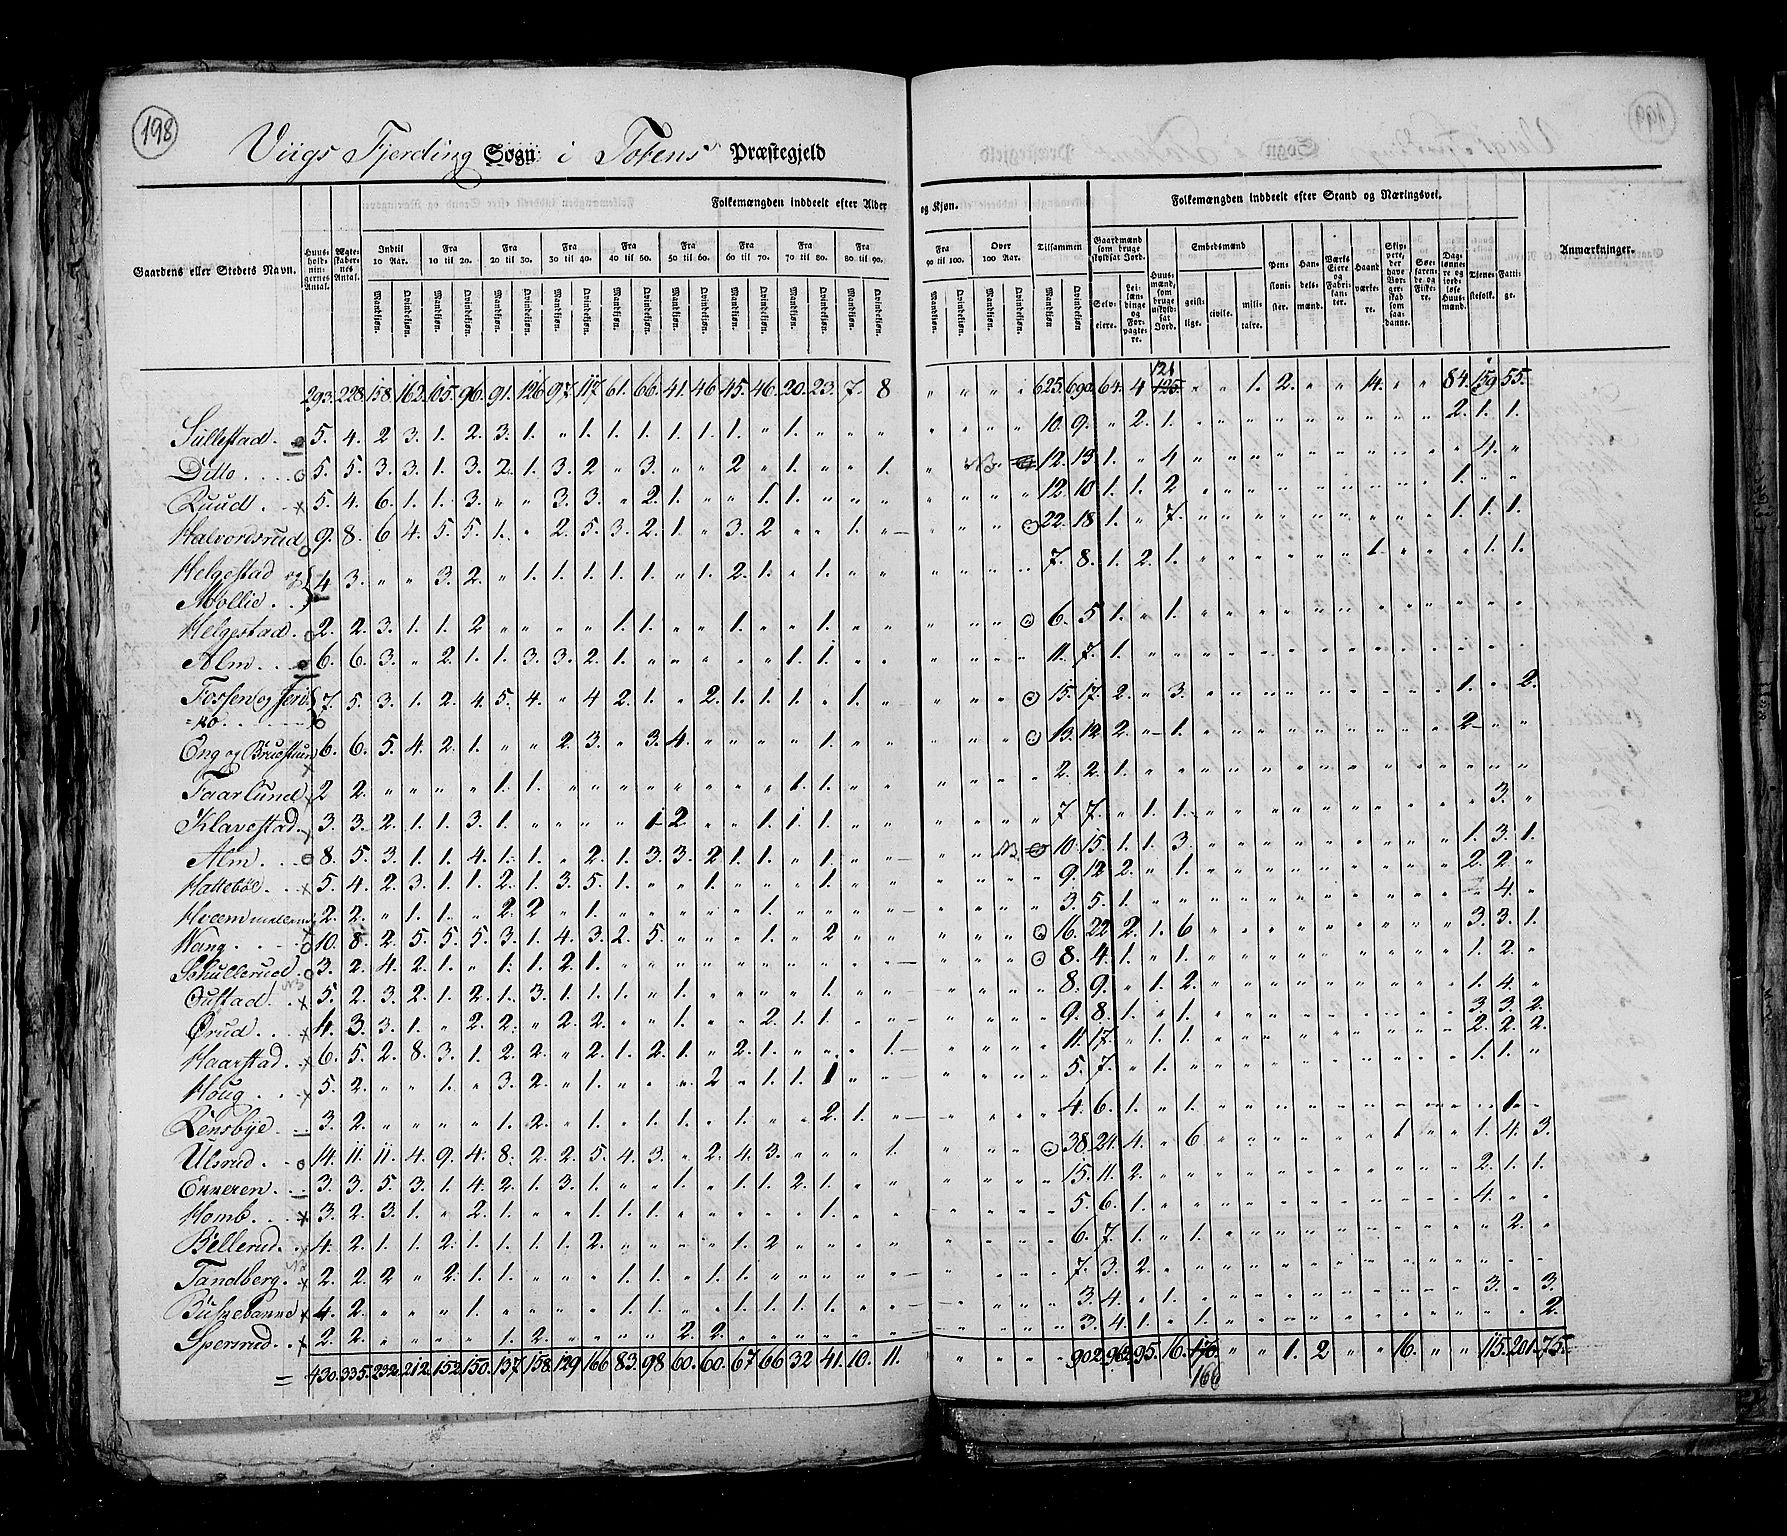 198
Viigs Fjerding Sogn i Totens Præstegjeld
Folkemængden inddeelt efter Alder og Kjøn.
Folkemængden inddeelt efter Stand og Næringsvei.
Gaardens eller Stedets Navn.
Huusholdningernes Antal.
Ægteskabernes Antal.
Indtil 10 Aar.
Fra 10 til 20.
Fra 20 til 30.
Fra 30 til 40.
Fra 40 til 50.
Fra 50 til 60.
Fra 60 til 70.
Fra 70 til 80.
Fra 80 til 90.
Fra 90 til 100.
Over 100 Aar.
Tilsammen
Mandkjøn. Qvindekjøn.
Gaardmænd som bruge skyldsat Jord.
Selveiere.
Leilændinge og Forpagtere.
Huusmænd, som bruge uskyldsat Jord.
Embedsmænd
geistlige. civile. militaire.
Pensionister.
Handelsmænd.
Værkseiere og Fabrikanter.
Haandværkere.
Skippere, der have Borgerskab som saadanne.
Søefarende og Fiskere.
Daglønnere og jordløse Huusmænd.
Tjenestefolk.
Fattige.
Anmærkninger.
293. 228. 158. 162. 105. 96. 91. 126. 97. 117. 61. 66. 41. 46. 45. 46. 20. 23. 7. 8 " " " " 625. 690. 64. 4 121 125. " " 1. 2. " " 14. " " 84. 159. 55.
Sullestad. 5. 4. 2 3. 1. 2. 3. 1. " 1. 1. 1. 1. 1. 1. " 1. " " " " " " " 10. 9. " 2. 1. " " " " " " " " " 2. 1. 1.
Ditto 5. 5. 3. 3. 1. 3. 2. 1. 3. 2 " 3. " " 2 " 1. " " 1. " NB. 12. 13. 1. " 4 " " " " " " " " " " 4. "
Ruud 5. 4. 6. 1. 1. 3. " " 3. 3. " 2. 1. " " 1. 1. " " " " " " " 12. 10 1. 1. 2 " " " " " " " " " 1. " "
Halvordsrud 9. 8. 6 4. 5. 5. 1. " 2. 5. 3. 2. 1. " 3. 2 " " 1. " " " " 22. 18 1. " 7. " " " " " " " " " 1. 1. 1.
Helgestad og
Mollie 4 3. " " 3. 2. " 1. 1. 1. 1. 1. " 1. 2. 1. " 1. " " " " " " 7. 8. 1. 2. 1. " " " " " " 1. " " " 1. 1.
Helgestad. 2. 2. 3. 1. 1. 2 " " " " 1. 1. " " 1. " " 1. " " " " " 6. 5 1. " 1. " " " " " " " " " " " "
Alm 6. 6. 3. " 2. 1. 1. 3. 3. 2. 1. " " " " " 1. 1. " " " " " " 11. 7. 1. " " " " " " " " " " " " " "
Fossen og Jeru=
=no 7. 5. 3. 1. 2. 4. 5. 4. " 4 2. 1. " 2. 1. 1. 1. " 1. " " " " 15. 17. 2. " 3. " " " " " " " " " 1. " 2.
Eng og Bruestuen 6. 6. 5. 4. 2. 1. " " 2. 3. " 3. 4. " " " " 1. " " " " " 13. 12 2. " 1. " " " " " " " " " 2 " "
Faarlund 2 2. " " " " 1. 1. " " " " " " " " 1. 1. " " " " " " 2. 2. 1. " " " " " " " " " " " " " "
Klavestad 3. 3. 2. 1. 1. 3. 1. " " " " 1 2. " " 1. 1. 1. " " " " " " 7 7. " 1. 1. " " " " " " " " " " 3. "
Alm 8. 5. 3. 1. 1. 4. 1. 1. " 2. 1. 3. 3. 2 1. 1. " 1. " " " " NB. 10. 15. 1. 1. 3. " " " " " " " " " 1. 3. 1.
Hattebøe 5. 4. 2. 3. 1. 1. 2. 1. 3. 5. 1. " " 1. " " " 1. " " " " " " 9. 12 2. " 1. " " " " " " " " " 2. 2. "
Hvæm 2. 2. " 1. 1. " 2. 2 " 1. " " " " " 1. " " " " " " " " 3. 5. 1. " " " " " " " " " " " " 4. "
Wang 10. 8. 2. 5. 5. 5. 3. 1. 4. 3. 2. 5. " " " 1. " 2 " " " " " 16. 22. 2. 1. 6 " " " " " " " " " 3. 3. 1.
Schullerud. 3. 2. 4. 2. 1. " 1. 1. 2. 1. " " " " " " " " " " " " " 8. 4. 1. " 1. " " " " " " " " " 1. 2. "
NB
Oustad 5. 2. 3. 2. 1. 2. 1. 3. 1. 1. 1. " 1. " " " " 1. " " " " " " 8. 9. " 1. 2. " " " " " " " " " 1. 4. "
Ørud 4. 3. 3. 1. " 2. 2. " 2. 2. " " 1. " " 2. 1. 1. " " " " " " 9. 8. 1. " 1. " " " " " " " " " 3. 3. 2.
Haarstad 6. 5. 2. 8. 3. 1. 2. 2. " 2. 1. 2. 1. " 2. 1. " " " 1. " " " " 11. 17. " 1. 1. " " " " " " " " " 2. 2. 2.
Houg 5. 2. " " 1. " 3. 2. " 1. " " " 2. " 1. 1. 1 " " " " " " 5. 7. " 1. " " " " " " " " " " 1. 1. "
Rensbye 3. 2. " " " " 1. 2. " 1. " 1. 1. " 1. " " 2. 1. " " " " " 4. 6. 1. " 1. " " " " " " " " " " 1. "
Ulsrud 14. 11. 11. 4. 9. 4. 8. 2. 2. 5. 4. 3. " 2. 4. 3. " " " 1. " " " 38. 24. 4. " 6 " " " " " " 1. " " 1. 4. 3.
Enneren 3. 3. 5. 3. 1. 4. 2. 1. 3. 1. " " 1. " 1. 1. 2. 1. " " " " " " 15. 11. 2. " " " " " " " " " " " 2. 1. 1.
Homb 3. 2. 3. 1. " 2. 1. " " 1. 1. 1. " " " " " 1. " " " " " " 5. 6. 1. " " " " " " " " " " " 4. " "
Bellerud 4. 2. 1. 1. 2. 1. 1. 1. 1. 2. " " " " 1. 2 " " " " " " " " 6. 7. 1. " 1. " " " " " " " " " " 2. "
Tandberg. 2. 2. 2 " 2. 1. 1. " " " 1. 1. " 1. 1. " " " " " " " " " 7. 3. 2. " " " " " " " " " " " " " "
4. 2. " " " 1. " " " " 1. 1. " " 1. 1. 1. 1. " " " " " " 3. 4. " 1. " " " " " " " " " " 3. " 3.
Spersrud 2. 2. " " " " 1. 2. " " " " 2. 2. " " " " " " " " " " 3. 4. 1. " 1. " " " " " " " " " " " 2.
= 430. 335. 232. 212. 152. 150. 137. 158. 129. 166. 83. 98. 60. 60. 67. 66. 32 41. 10. 11. " " " " 902. 962. 95. 16. 170. " " 1. 2 " " 16. " " 115. 201. 75.
166